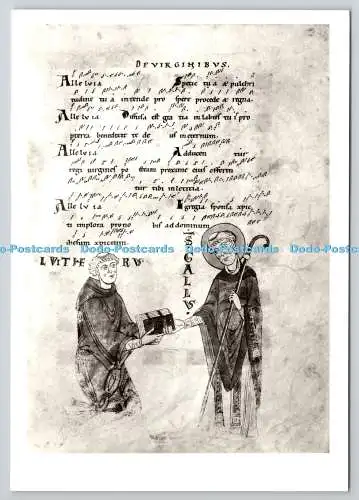 DE VIRGINIBUS.
Alleluia Specie tua & pulchri
tudine tua intende pro spere procede & regna.
Alleluia Diffusa est gra tia in labiis tuis pro
pterea benedixit te de us in eternum.
Alleluia Adducen tur
regi virgines po steam proxime eius offeren
tur tibi in leticia.
Alleluia Egregia sponsa xpi
ti implora pro no bis ad dominum
ihesum xpicticum.
LUITHERUS
SCS GALLUS.
D-Postcards
D-Postcards
D-Postcards
D-Postcards